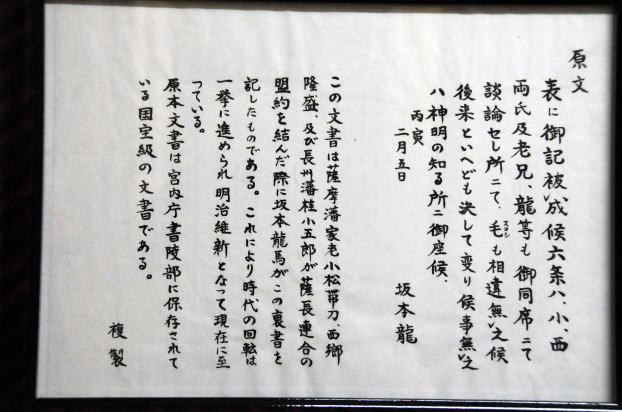 原文
表に御記被成候六条ハ、小、西
両氏及老兄、龍等も御同席ニて
談論セし所ニて、毛も相違無之候
スコシ
後来といへども決して変り候事無之
ハ神明の知る所ニ御座候、
丙寅
二月五日
坂本龍
この文書は薩摩藩家老小松帯刀、西郷
隆盛、及び長州藩桂小五郎が薩長連合の
盟約を結んだ際に坂本龍馬がこの裏書を
記したものである。これにより時代の回転は
一挙に進められ明治維新となって現在に至
っている。
原本文書は宮内庁書陵部に保存されて
いる国宝級の文書である。
複製